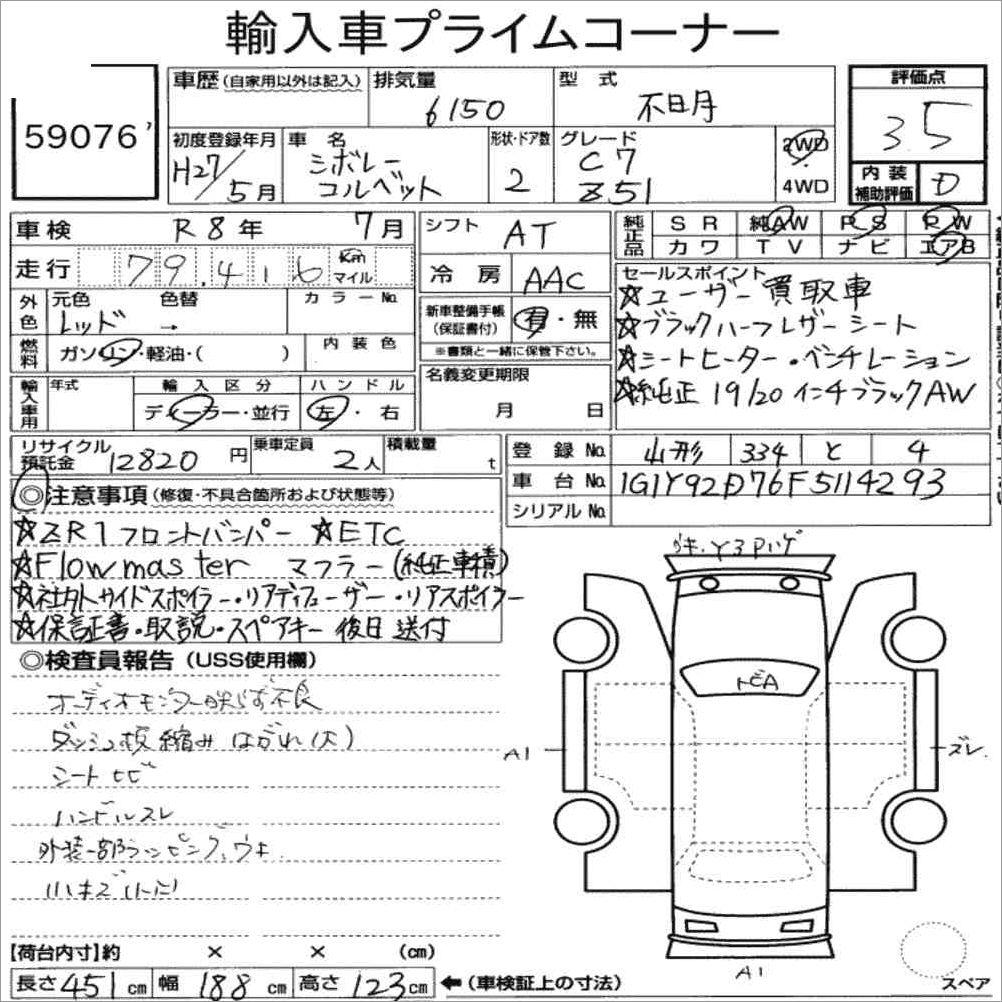 輸入車プライムコーナー
59076
車歴(自家用以外は記入)
排気量 6150
型式 不明
評価点 3.5
初度登録年月 H27/5月
車名 シボレー コルベット
形状・ドア数 2
グレード C7 Z51
2WD・4WD
内装補助評価 D
車検 R8年 7月
シフト AT
純正品 SR 純AW PS PW
カワ TV ナビ エアB
走行 79,416 Km マイル
冷房 AAC
セールスポイント
☆ユーザー買取車
☆ブラックハーフレザーシート
☆シートヒーター・ベンチレーション
☆純正19/20インチブラックAW
外色 元色 レッド 色替 → カラーNo.
新車整備手帳(保証書付) 有・無
※書類と一緒に保管下さい。
燃料 ガソリン・軽油・( ) 内装色
名義変更期限 月 日
輸入車用 年式 輸入区分 ディーラー・並行 ハンドル 左・右
リサイクル預託金 12820円
乗車定員 2人
積載量 t
登録No. 山形 334 と 4
車台No. 1G1Y92D76F5114293
シリアルNo.
◎注意事項(修復・不具合箇所および状態等)
☆ZR1フロントバンパー ☆ETC
☆Flowmaster マフラー(純正車積)
☆社外サイドスポイラー・リアディフューザー・リアスポイラー
☆保証書・取説・スペアキー後日送付
◎検査員報告(USS使用欄)
オーディオモニター映らず不良
ダッシュ板縮みはがれ(大)
シートヒビ
ハンドルスレ
外装一部ラッピング、ウキ
小キズ
トビA
A1
ズレ
A1
スペア
【荷台内寸】約 × × (cm)
長さ451cm 幅188cm 高さ123cm ←(車検証上の寸法)